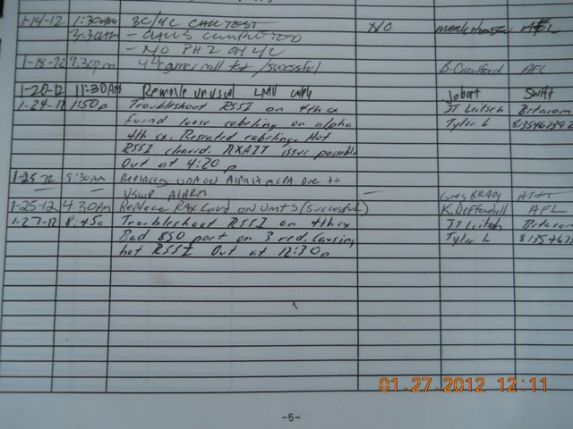 1-14-12 1:30AM 3C/4C CALL TEST NO AFL
3:30AM - CALLS COMPLETED
- NO PH2 ON 4C
1-18-12 9:30pm 4th carrier call tst /sucessful B. Crawford AFL
1-20-12 11:30AM Remove unused LMU cable Jobert Swift
1-24-12 1:50p Troubleshoot RSSI on 4th cx JT Leitsch Bitacom
Found loose cabeling on alpha Tyler L
4th cx. Reseated cabeling. Hot
RSSI cleard. RXAIT issue possible
Out at 4:20 p
1-25-12 9:30am Replacing Due to
VSWR ALARM Greg BRADY AT&T
1-25-12 4:30pm Replace RAX Card ON UMTS (Successful) K. Deffendall AFL
1-27-12 8:45a Troubleshoot RSSI on 4th cx JT Leitsch Bitacom
Bad 850 port on 3 red. Causing Tyler L
hot RSSI Out at 12:30p
01.27.2012 12:11
-5-